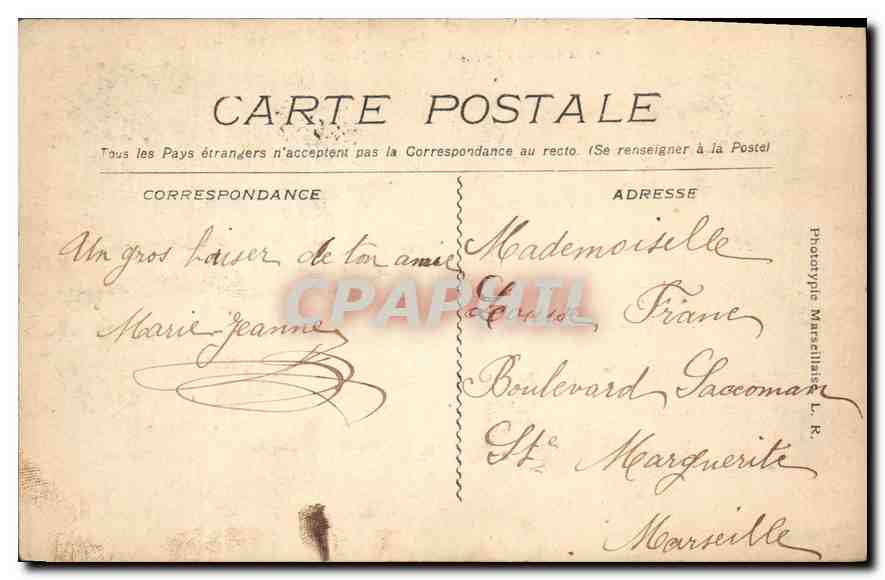 CARTE POSTALE
Tous les Pays étrangers n'acceptent pas la Correspondance au recto. (Se renseigner à la Poste)
CORRESPONDANCE
Un gros baiser de ton amie
Marie-Jeanne
ADRESSE
Mademoiselle
Louise Franc
Boulevard Saccoman
Ste Marguerite
Marseille
Phototypie Marseillaise L. R.
CPAPHIL